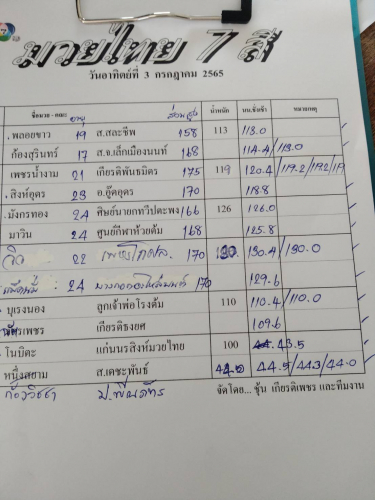 มวยไทย 7 สี
วันอาทิตย์ที่ 3 กรกฎาคม 2565
ชื่อมวย - คณะ อายุ ส่วนสูง น้ำหนัก นน.ชั่งเช้า หมายเหตุ
พลอยขาว 19 ส.สละชีพ 158 113 113.0
ก้องสุรินทร์ 17 ส.จ.เล็กเมืองนนท์ 168 114.4/113.0
เพชรน้ำงาม 21 เกียรติพันธมิตร 175 119 120.4/119.2/119.2/119
สิงห์อุดร 23 อ.อู๊ดอุดร 170 118.8
มังกรทอง 24 ศิษย์นายกทวีปตะพง 166 126 126.0
มาวิน 24 ศูนย์กีฬาห้วยต้ม 168 125.8
22 170 130. 130.4/130.0
24 170 129.6
บุเรงนอง ลูกเจ้าพ่อโรงต้ม 110 110.4/110.0
เพชร เกียรติธงยศ 109.6
โนบิตะ แก่นนรสิงห์มวยไทย 100 43.5
หนึ่งสยาม ส.เดชะพันธ์ 44.0 44.5/44.3/44.0
จัดโดย... ชุ้น เกียรติเพชร และทีมงาน